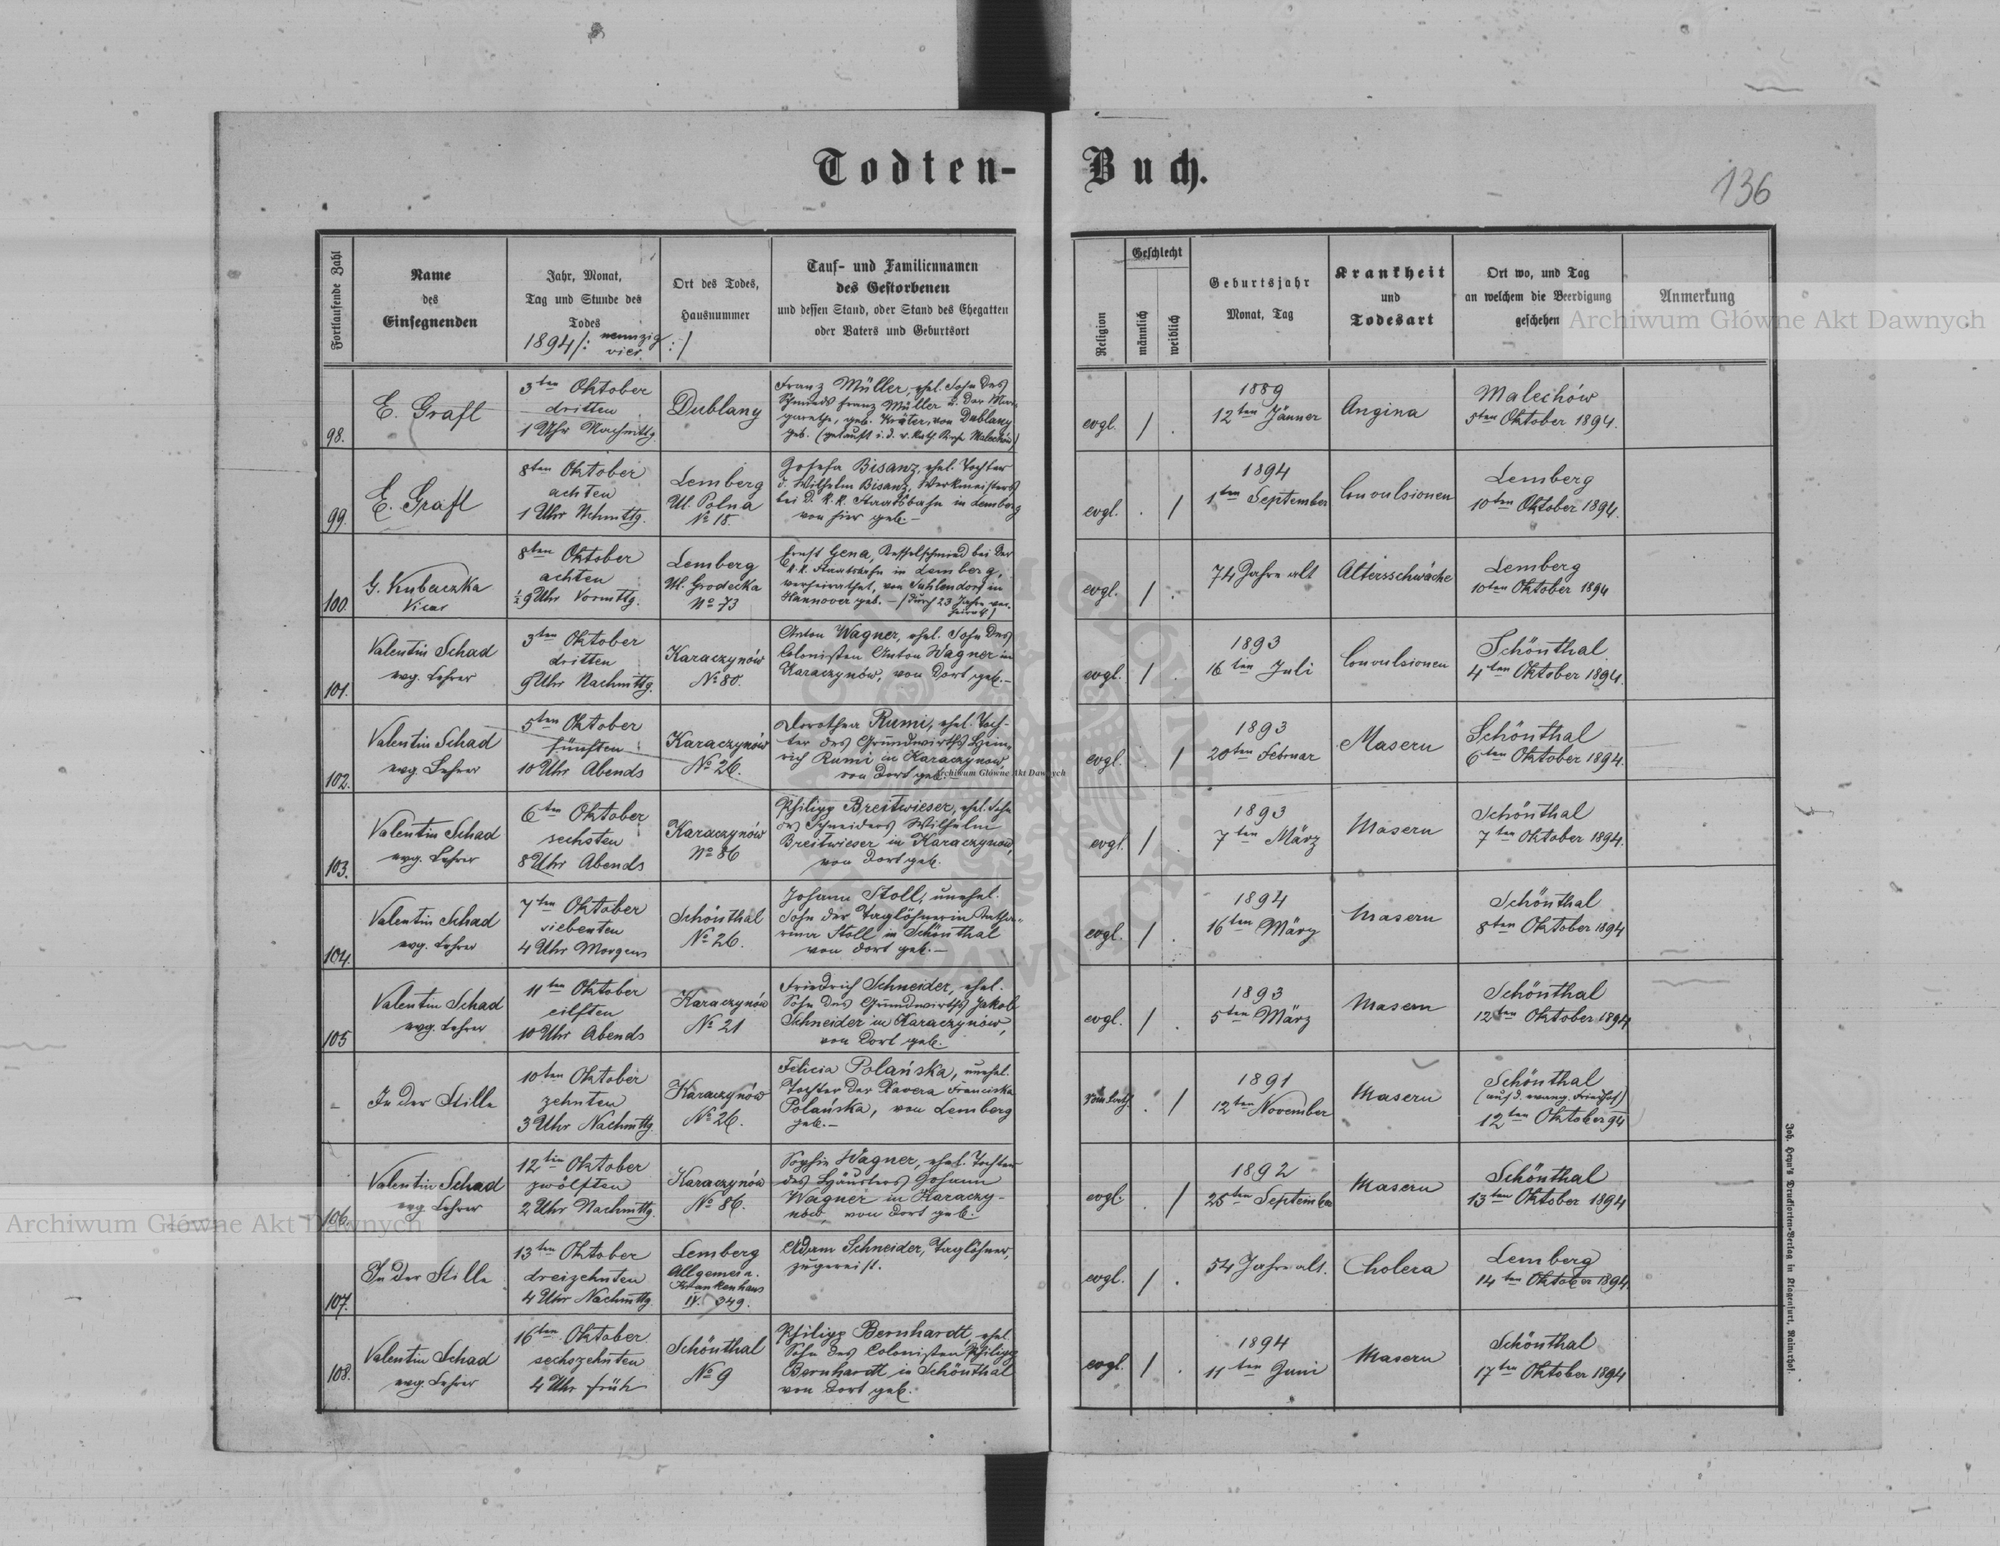 Todten-Buch.
136
Fortlaufende Zahl
Name
des
Einsegnenden
Jahr, Monat,
Tag und Stunde des
Todes
1894/: neunzig
vier :/
Ort des Todes,
Hausnummer
Tauf- und Familiennamen
des Gestorbenen
und dessen Stand, oder Stand des Ehegatten
oder Vaters und Geburtsort
Religion
Geschlecht
männlich
weiblich
Geburtsjahr
Monat, Tag
Krankheit
und
Todesart
Ort wo, und Tag
an welchem die Beerdigung
geschehen
Anmerkung
98.
E. Grafl
3ten Oktober
dritten
1 Uhr Nachmittg.
Dublany
Franz Müller, ehel. Sohn des
Schmieds Franz Müller u. der Mar-
garethe, geb. Kräter, von Dublany
geb. (getauft i. d. r. kath. Malechów)
evgl.
/ .
1889
12ten Jänner
Angina
Malechów
5ten Oktober 1894.
99.
E. Grafl
8ten Oktober
achten
1 Uhr Nchmttg.
Lemberg
Ul. Polna
No 18.
Josefa Bisanz, ehel. Tochter
d. Wilhelm Bisanz, Werkmeisters
bei d. k. k. Staatsbahn in Lemberg
von hier geb. -
evgl.
. /
1894
1ten September
Convulsionen
Lemberg
10ten Oktober 1894.
100.
G. Kubaczka
Vicar
8ten Oktober
achten
½9 Uhr Vormttg.
Lemberg
Ul. Grodecka
No 73
Ernst Gena, Kesselschmied bei der
k. k. Staatsbahn in Lemberg,
verheirathet, von Suhlendorf in
Hannover geb. - (durch 23 Jahre ver-
heirath.)
evgl.
/ .
74 Jahre alt
Altersschwäche
Lemberg
10ten Oktober 1894
101.
Valentin Schad
evg. Lehrer
3ten Oktober
dritten
9 Uhr Nachmttg.
Karaczynów
No 80.
Anton Wagner, ehel. Sohn des
Colonisten Anton Wagner in
Karaczynów, von dort geb. -
evgl.
/ .
1893
16ten Juli
Convulsionen
Schönthal
4ten Oktober 1894.
102.
Valentin Schad
evg. Lehrer
5ten Oktober
fünften
10 Uhr Abends
Karaczynów
No 26.
Dorothea Rumi, ehel. Toch-
ter des Grundwirths Hein-
rich Rumi in Karaczynów
von dort geb.
evgl.
. /
1893
20ten Februar
Masern
Schönthal
6ten Oktober 1894.
103.
Valentin Schad
evg. Lehrer
6ten Oktober
sechsten
8 Uhr Abends
Karaczynów
No 86
Philipp Breitwieser, ehel. Sohn
des Schneiders Wilhelm
Breitwieser in Karaczynów,
von dort geb.
evgl.
/ .
1893
7ten März
Masern
Schönthal
7ten Oktober 1894.
104.
Valentin Schad
evg. Lehrer
7ten Oktober
siebenten
4 Uhr Morgens
Schönthal
No 26.
Johann Stoll, unehel.
Sohn der Taglöhnerin Katha-
rina Stoll in Schönthal
von dort geb. -
evgl.
/ .
1894
16ten März
Masern
Schönthal
8ten Oktober 1894
105
Valentin Schad
evg. Lehrer
11ten Oktober
eilften
10 Uhr Abends
Karaczynów
No 21
Friedrich Schneider, ehel.
Sohn des Grundwirths Jakob
Schneider in Karaczynów,
von dort geb.
evgl.
/ .
1893
5ten März
Masern
Schönthal
12ten Oktober 1894
-
In der Stille
10ten Oktober
zehnten
3 Uhr Nachmttg.
Karaczynów
No 26.
Felicia Polańska, unehel.
Tochter der Xavera Franciska
Polańska, von Lemberg
geb. -
röm. kath.
. /
1891
12ten November
Masern
Schönthal
(auf d. evang. Friedhof)
12ten Oktober 94
106.
Valentin Schad
evg. Lehrer
12ten Oktober
zwölften
2 Uhr Nachmttg.
Karaczynów
No 86.
Sophie Wagner, ehel. Tochter
des Häuslers Johann
Wagner in Karaczy-
nów, von dort geb.
evgl.
. /
1892
25ten September
Masern
Schönthal
13ten Oktober 1894
107.
In der Stille
13ten Oktober
dreizehnten
4 Uhr Nachmttg.
Lemberg
Allgemein.
Krankenhaus
Adam Schneider, Taglöhner,
zugereist.
evgl.
/ .
54 Jahre alt.
Cholera
Lemberg
14ten Oktober 1894.
108.
Valentin Schad
evg. Lehrer
16ten Oktober
sechszehnten
4 Uhr früh
Schönthal
No 9
Philipp Bernhardt, ehel.
Sohn des Colonisten Philipp
Bernhardt in Schönthal
von dort geb.
evgl.
/ .
1894
11ten Juni
Masern
Schönthal
17ten Oktober 1894
Joh. Heyn's Drucksorten-Verlag in Klagenfurt, Rainerhof.
Archiwum Główne Akt Dawnych
Archiwum Główne Akt Dawnych
Archiwum Główne Akt Dawnych